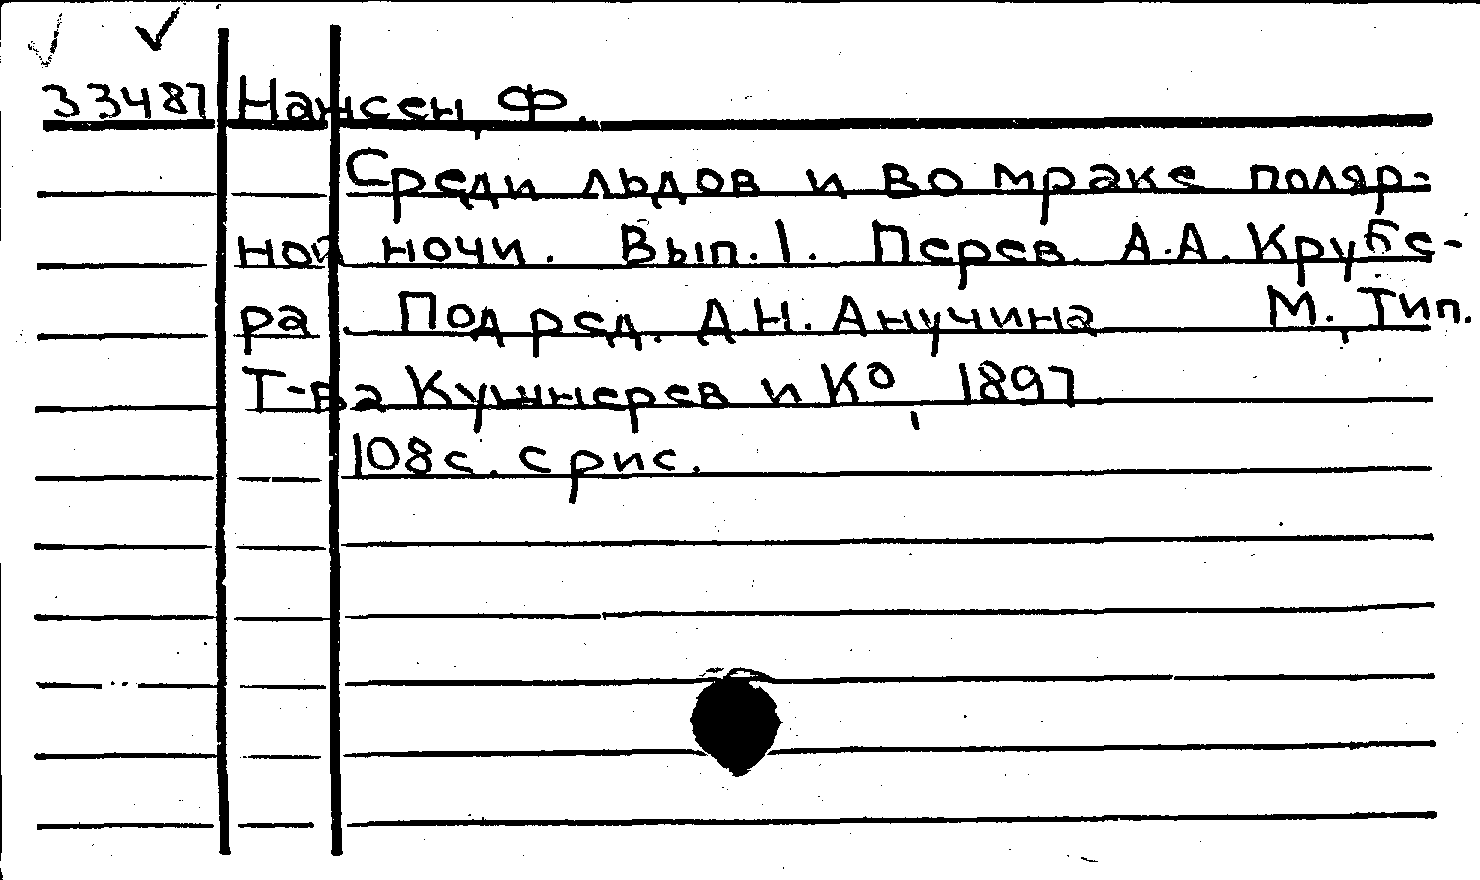 33487 Нансен, Ф.
Среди льдов и во мраке поляр-
ной ночи. Вып. 1. Перев. А.А. Крубе-
ра Под ред. Д.Н. Анучина М., Тип.
Т-ва Кушнерев и Ко, 1897
108 с. с рис.